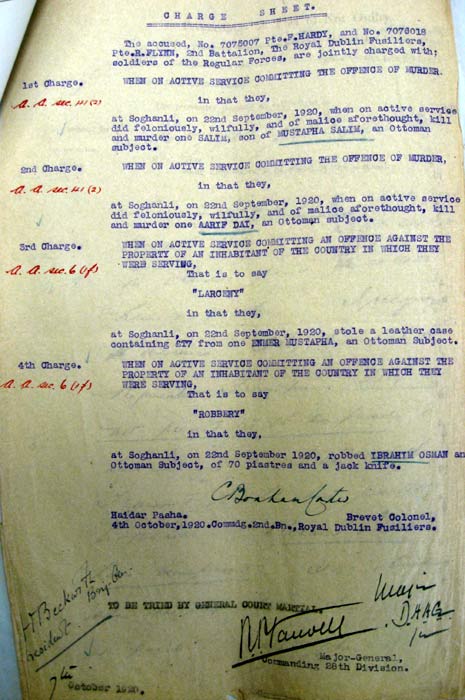 CHARGE SHEET.
The accused, No. 7075007 Pte.F.HARDY, and No. 7076018
Pte.R.FLYNN, 2nd Battalion, The Royal Dublin Fusiliers,
soldiers of the Regular Forces, are jointly charged with;
1st Charge. WHEN ON ACTIVE SERVICE COMMITTING THE OFFENCE OF MURDER.
A.A. sec. 41 (2)
in that they,
at Soghanli, on 22nd September, 1920, when on active service
did feloniously, wilfully, and of malice aforethought, kill
and murder one SALIM, son of MUSTAPHA SALIM, an Ottoman
subject.
2nd Charge. WHEN ON ACTIVE SERVICE COMMITTING THE OFFENCE OF MURDER,
A.A. sec. 41 (2)
in that they,
at Soghanli, on 22nd September, 1920, when on active service
did feloniously, wilfully, and of malice aforethought, kill
and murder one AARIF DAI, an Ottoman subject.
3rd Charge. WHEN ON ACTIVE SERVICE COMMITTING AN OFFENCE AGAINST THE
PROPERTY OF AN INHABITANT OF THE COUNTRY IN WHICH THEY
WERE SERVING,
A.A. sec. 6 (1f)
That is to say
"LARCENY"
in that they,
at Soghanli, on 22nd September, 1920, stole a leather case
containing £T7 from one ENMER MUSTAPHA, an Ottoman Subject.
4th Charge. WHEN ON ACTIVE SERVICE COMMITTING AN OFFENCE AGAINST THE
PROPERTY OF AN INHABITANT OF THE COUNTRY IN WHICH THEY
WERE SERVING,
A.A. sec. 6 (1f)
That is to say
"ROBBERY"
in that they,
at Soghanli, on 22nd September 1920, robbed IBRAHIM OSMAN an
Ottoman Subject, of 70 piastres and a jack knife.
C Bonham Carter
Haidar Pasha. Brevet Colonel,
4th October,1920.Commdg.2nd.Bn.,Royal Dublin Fusiliers.
Beckwith
Brig.Gen.
President
TO BE TRIED BY GENERAL COURT MARTIAL.
Major
DAAG
Major-General,
Commanding 28th Division.
7th
October 1920.